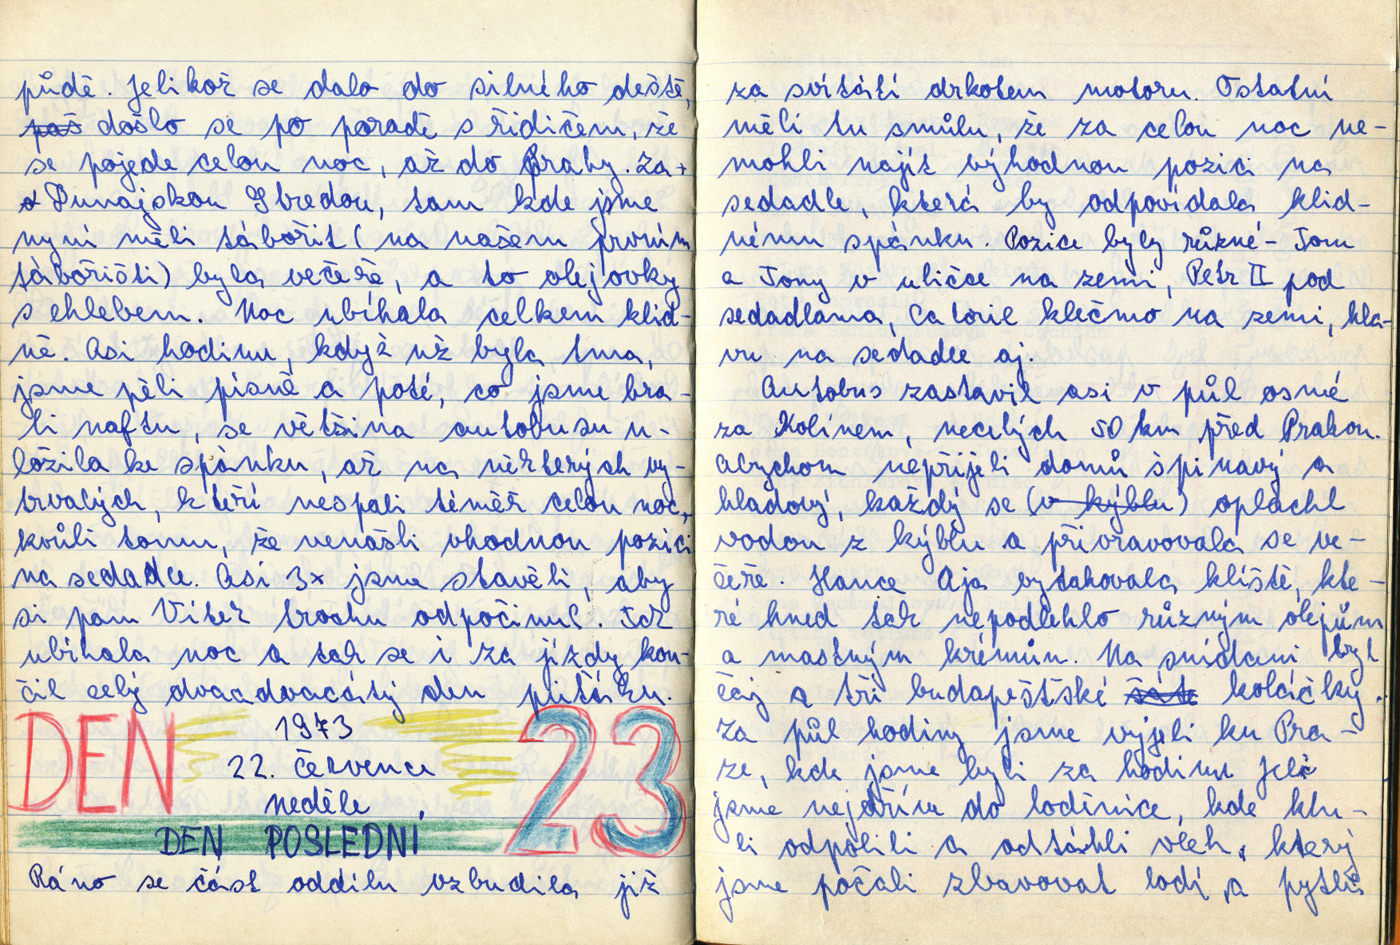 půdě. Jelikož se dalo do silného deště,
paš došlo se po poradě s řidičem, že
se pojede celou noc, až do Prahy. Za
Dunajskou Stredou, tam kde jsme
nyní měli tábořit (na našem prvním
tábořišti) byla večeře, a to olejovky
s chlebem. Noc ubíhala celkem klid-
ně. Asi hodinu, když už byla tma,
jsme pěli písně a poté, co jsme bra-
li naftu, se většina autobusu u-
ložila ke spánku, až na některých vy-
trvalých, kteří nespali téměř celou noc,
kvůli tomu, že nenašli vhodnou pozici
na sedadle. Asi 3x jsme stavěli, aby
si pan Vítek trochu odpočinul. Tak
ubíhala noc a tak se i za jízdy kon-
čil celý dvacdvacátý den putáku.
DEN 1973 23
22. července
neděle
DEN POSLEDNÍ
Ráno se část oddílu vzbudila již
za svítání drkotem motoru. Ostatní
měli tu smůlu, že za celou noc ne-
mohli najít výhodnou pozici na
sedadle, která by odpovídala klid-
nému spánku. Pozice byly různé - Tom
a Tony v uličce na zemi, Petr II pod
sedadlama, Catoril klečmo na zemi, hla-
vu na sedadle aj.
Autobus zastavil asi v půl osmé
za Kolínem, necelých 50 km před Prahou.
Abychom nepřijeli domů špinavý a
hladový, každý se (v kýblu) opláchl
vodou z kýblu a připravovala se ve-
čeře. Hance Aja vytahovala klíště, kte-
ré hned tak nepodlehlo různým olejům
a mastným krémům. Na snídani byl
čaj a tři budapeštské koláčky.
Za půl hodiny jsme vyjeli ku Pra-
ze, kde jsme byli za hodinu. Jeli
jsme nejdřív do loděnice, kde klu-
ci odpojili a odtáhli vlek, který
jsme počali zbavovat lodí a pytlů